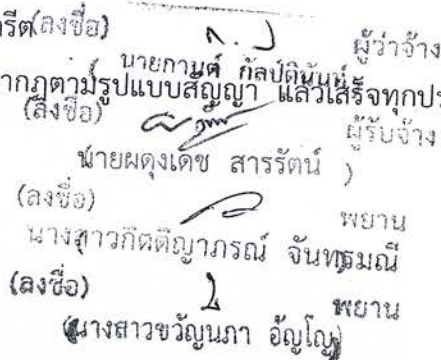 รีต(ลงชื่อ) ผู้ว่าจ้าง
นายกานต์ กัลป์ตินันท์
ากฎตามรูปแบบสัญญา แล้วเสร็จทุกป
(ลงชื่อ) ผู้รับจ้าง
นายผดุงเดช สารรัตน์ )
(ลงชื่อ) พยาน
นางสาวกิตติญาภรณ์ จันทรมณี
(ลงชื่อ) พยาน
(นางสาวขวัญนภา อัญโญ)